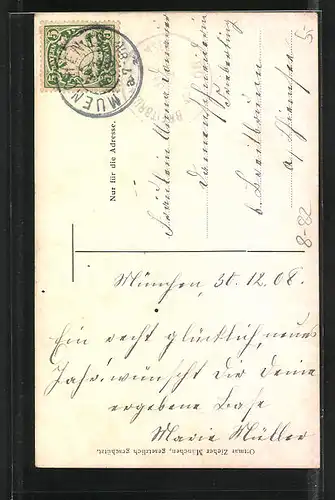 5
MUEN
Nur für die Adresse.
Fräulein
Damenschneiderin
b. Breitbrunn
a/ Chiemsee
8-82
München, 30. 12. 08.
Ein recht glücklich, neues
Jahr wünscht Dir Deine
ergebene Base
Marie Müller
Ottmar Zieher München, gesetzlich geschützt.